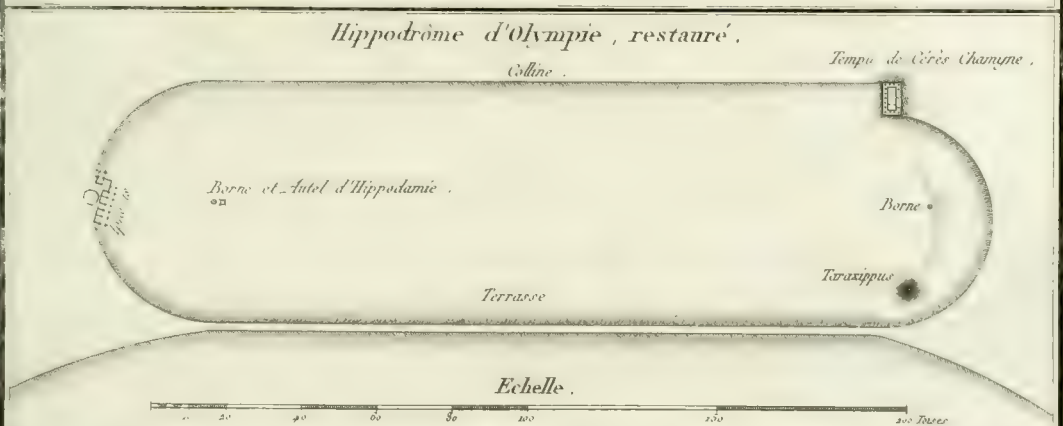 Hippodrôme d'Olympie, restauré.
Colline.
Temple de Cérès Chamyne.
Borne et Autel d'Hippodamie.
Borne
Taraxippus
Terrasse
Echelle.
10 20 40 60 80 100 150 200 Toises